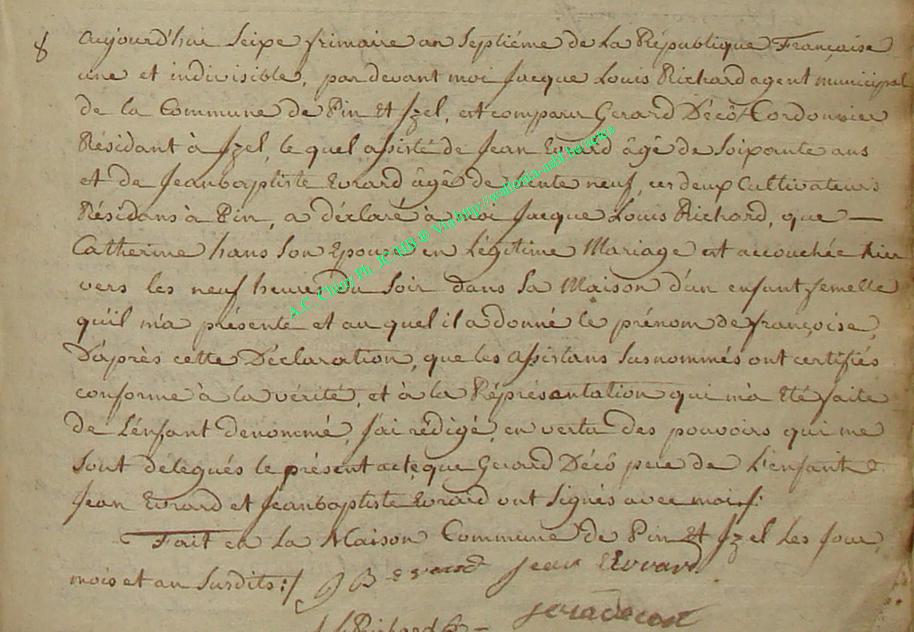 8 aujourd'hui Seipe frimaire an Septiéme de La République Française
une et indivisible, pardevant moi Jacque Louis Richard agent municipal
de la Commune de Pin Et Izel, est comparu Gerard Décô Cordonnier
Résidant à Izel, le quel assisté de Jean Evrard âgé de Soixante ans
et de Jeanbaptiste Evrard âgé de trente neuf, ces deux Cultivateurs
Résidans à Pin, a déclaré à moi Jacque Louis Richard, que —
Catherine hans Son Epouse en Légitime Mariage est accouchée hier
vers les neuf heures du Soir dans Sa Maison d'un enfant femelle
qu'il m'a présenté et au quel il a donné le prénom de françoise,
D'après cette Déclaration, que les assistans Susnommés ont certifiés
conforme à la vérité, et à la Réprésentation qui m'a Eté faite
de L'enfant denommé, J'ai rédigé, en vertu des pouvoirs qui me
Sont délegués le présent acte, que Gerard Décô pere de L'enfant
Jean Evrard et Jeanbaptiste Evrard ont Signés avec moi ./.
Fait en La Maison Commune de Pin Et Izel Les Jour,
mois et an Susdits :/ J B evrard Jean Evrard
J L Richard
A.C. Chiny Ph. R. MB © Via http://wallonia-mdl.be/actes